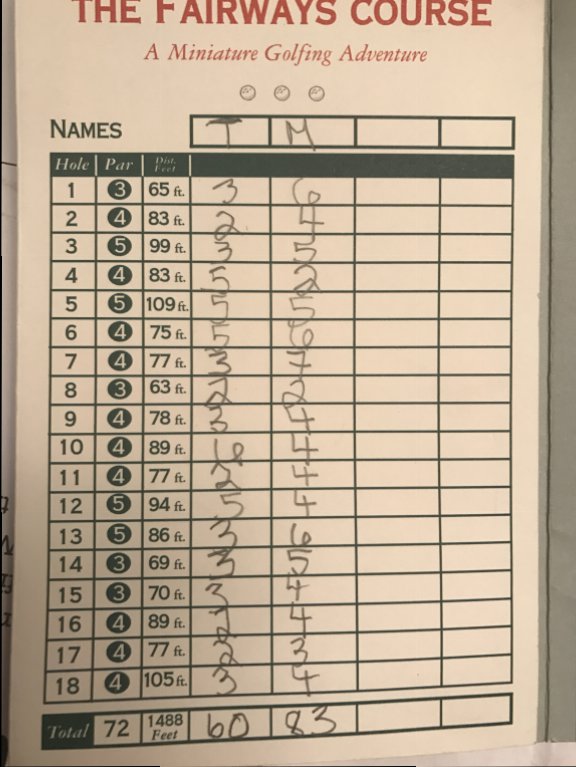 THE FAIRWAYS COURSE
A Miniature Golfing Adventure
NAMES T M
Hole Par Dist. Feet
1 3 65 ft. 3 6
2 4 83 ft. 2 4
3 5 99 ft. 3 5
4 4 83 ft. 5 2
5 5 109 ft. 5 5
6 4 75 ft. 5 6
7 4 77 ft. 3 4
8 3 63 ft. 2 2
9 4 78 ft. 3 4
10 4 89 ft. 6 4
11 4 77 ft. 2 4
12 5 94 ft. 5 4
13 5 86 ft. 3 6
14 3 69 ft. 3 5
15 3 70 ft. 3 4
16 4 89 ft. 4
17 4 77 ft. 2 3
18 4 105 ft. 3 4
Total 72 1488 Feet 60 83